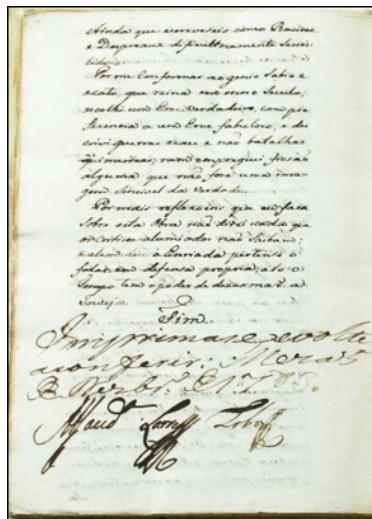 Ainda que escrevesseis como Racine
e Despreaux dificultozamente sereis
lidos.
Por me conformar ao genio sabio e
exato, que reina em nosso Seculo,
escolhi um Eroe verdadeiro, com pre
ferencia a um Eroe fabuloso, e des
crevi guerras reaes e não batalhas
quimericas, nem empreguei ficsão
alguma que não fora uma ima
gem sensivel da Verdade.
Por mais reflexoens que eu faça
sobre esta Obra não direi nada que
os Criticos alumiados não saibam;
a Enriada pertence o
falar em defensa propria, e só o
tempo tem o poder de desarmar a
Inveja.
Fim.
Imprimase e volte
a conferir. Meza